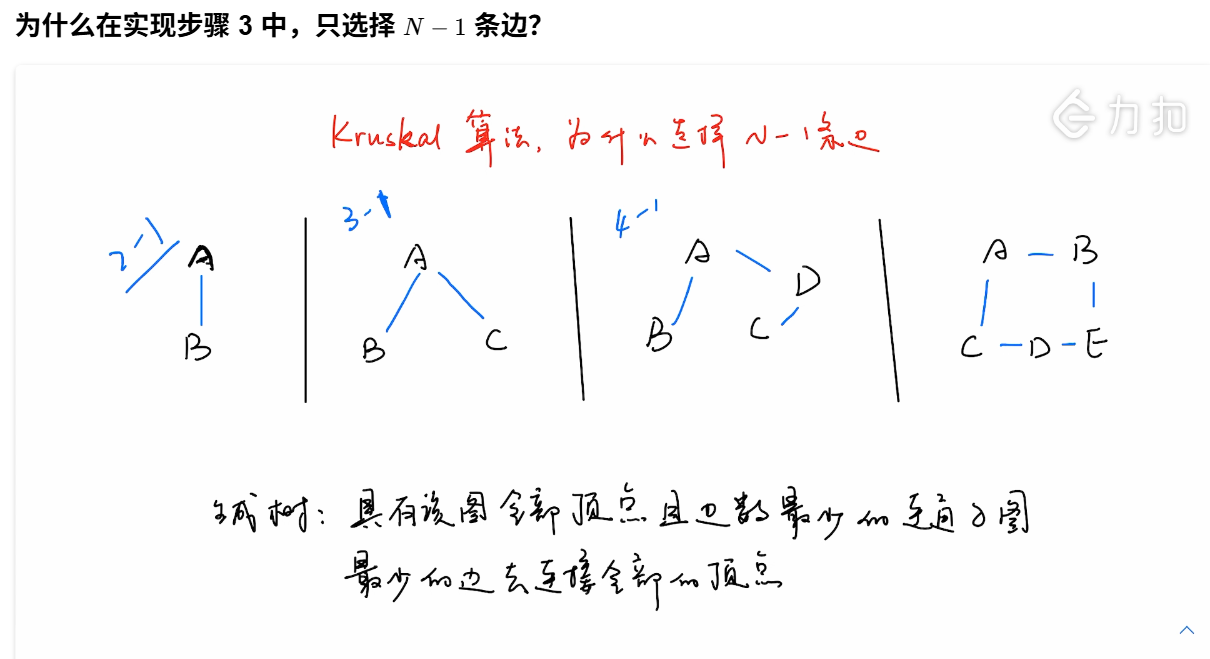 为什么在实现步骤 3 中，只选择 N − 1 条边？
力扣
Kruskal 算法，为什么选择 N-1条边
2-1
3-1
4-1
A
B
A
B
C
A
D
B
C
A
B
C
D
E
生成树：具有该图全部顶点且边数最少的连通子图
最少的边去连接全部的顶点